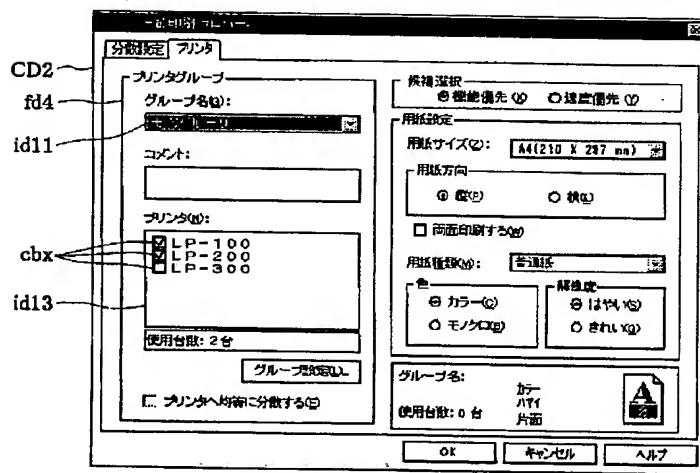 分散設定 プリンタ
CD2
fd4
id11
cbx
id13
プリンタグループ
グループ名(G):
コメント:
プリンタ(N):
LP-100
LP-200
LP-300
使用台数: 2台
グループ設定(L)...
プリンタへ均等に分散する(E)
候補選択
機能優先(X) 速度優先(Y)
用紙設定
用紙サイズ(Z): A4(210 X 297 mm)
用紙方向
縦(P) 横(L)
両面印刷する(W)
用紙種類(M): 普通紙
色
カラー(C)
モノクロ(B)
解像度
はやい(S)
きれい(Q)
グループ名:
カラー
ハヤイ
片面
使用台数: 0 台
OK キャンセル ヘルプ